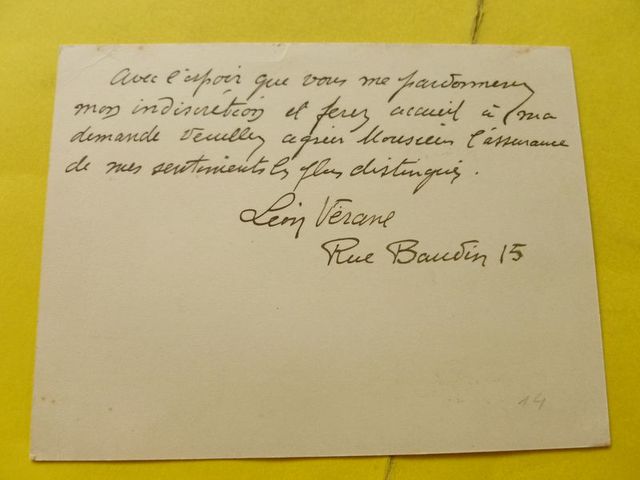 Avec l'espoir que vous me pardonnerez
mon indiscrétion et ferez accueil à ma
demande veuillez agréer Monsieur l'assurance
de mes sentiments les plus distingués.
Léon Vérane
Rue Baudin 15
14